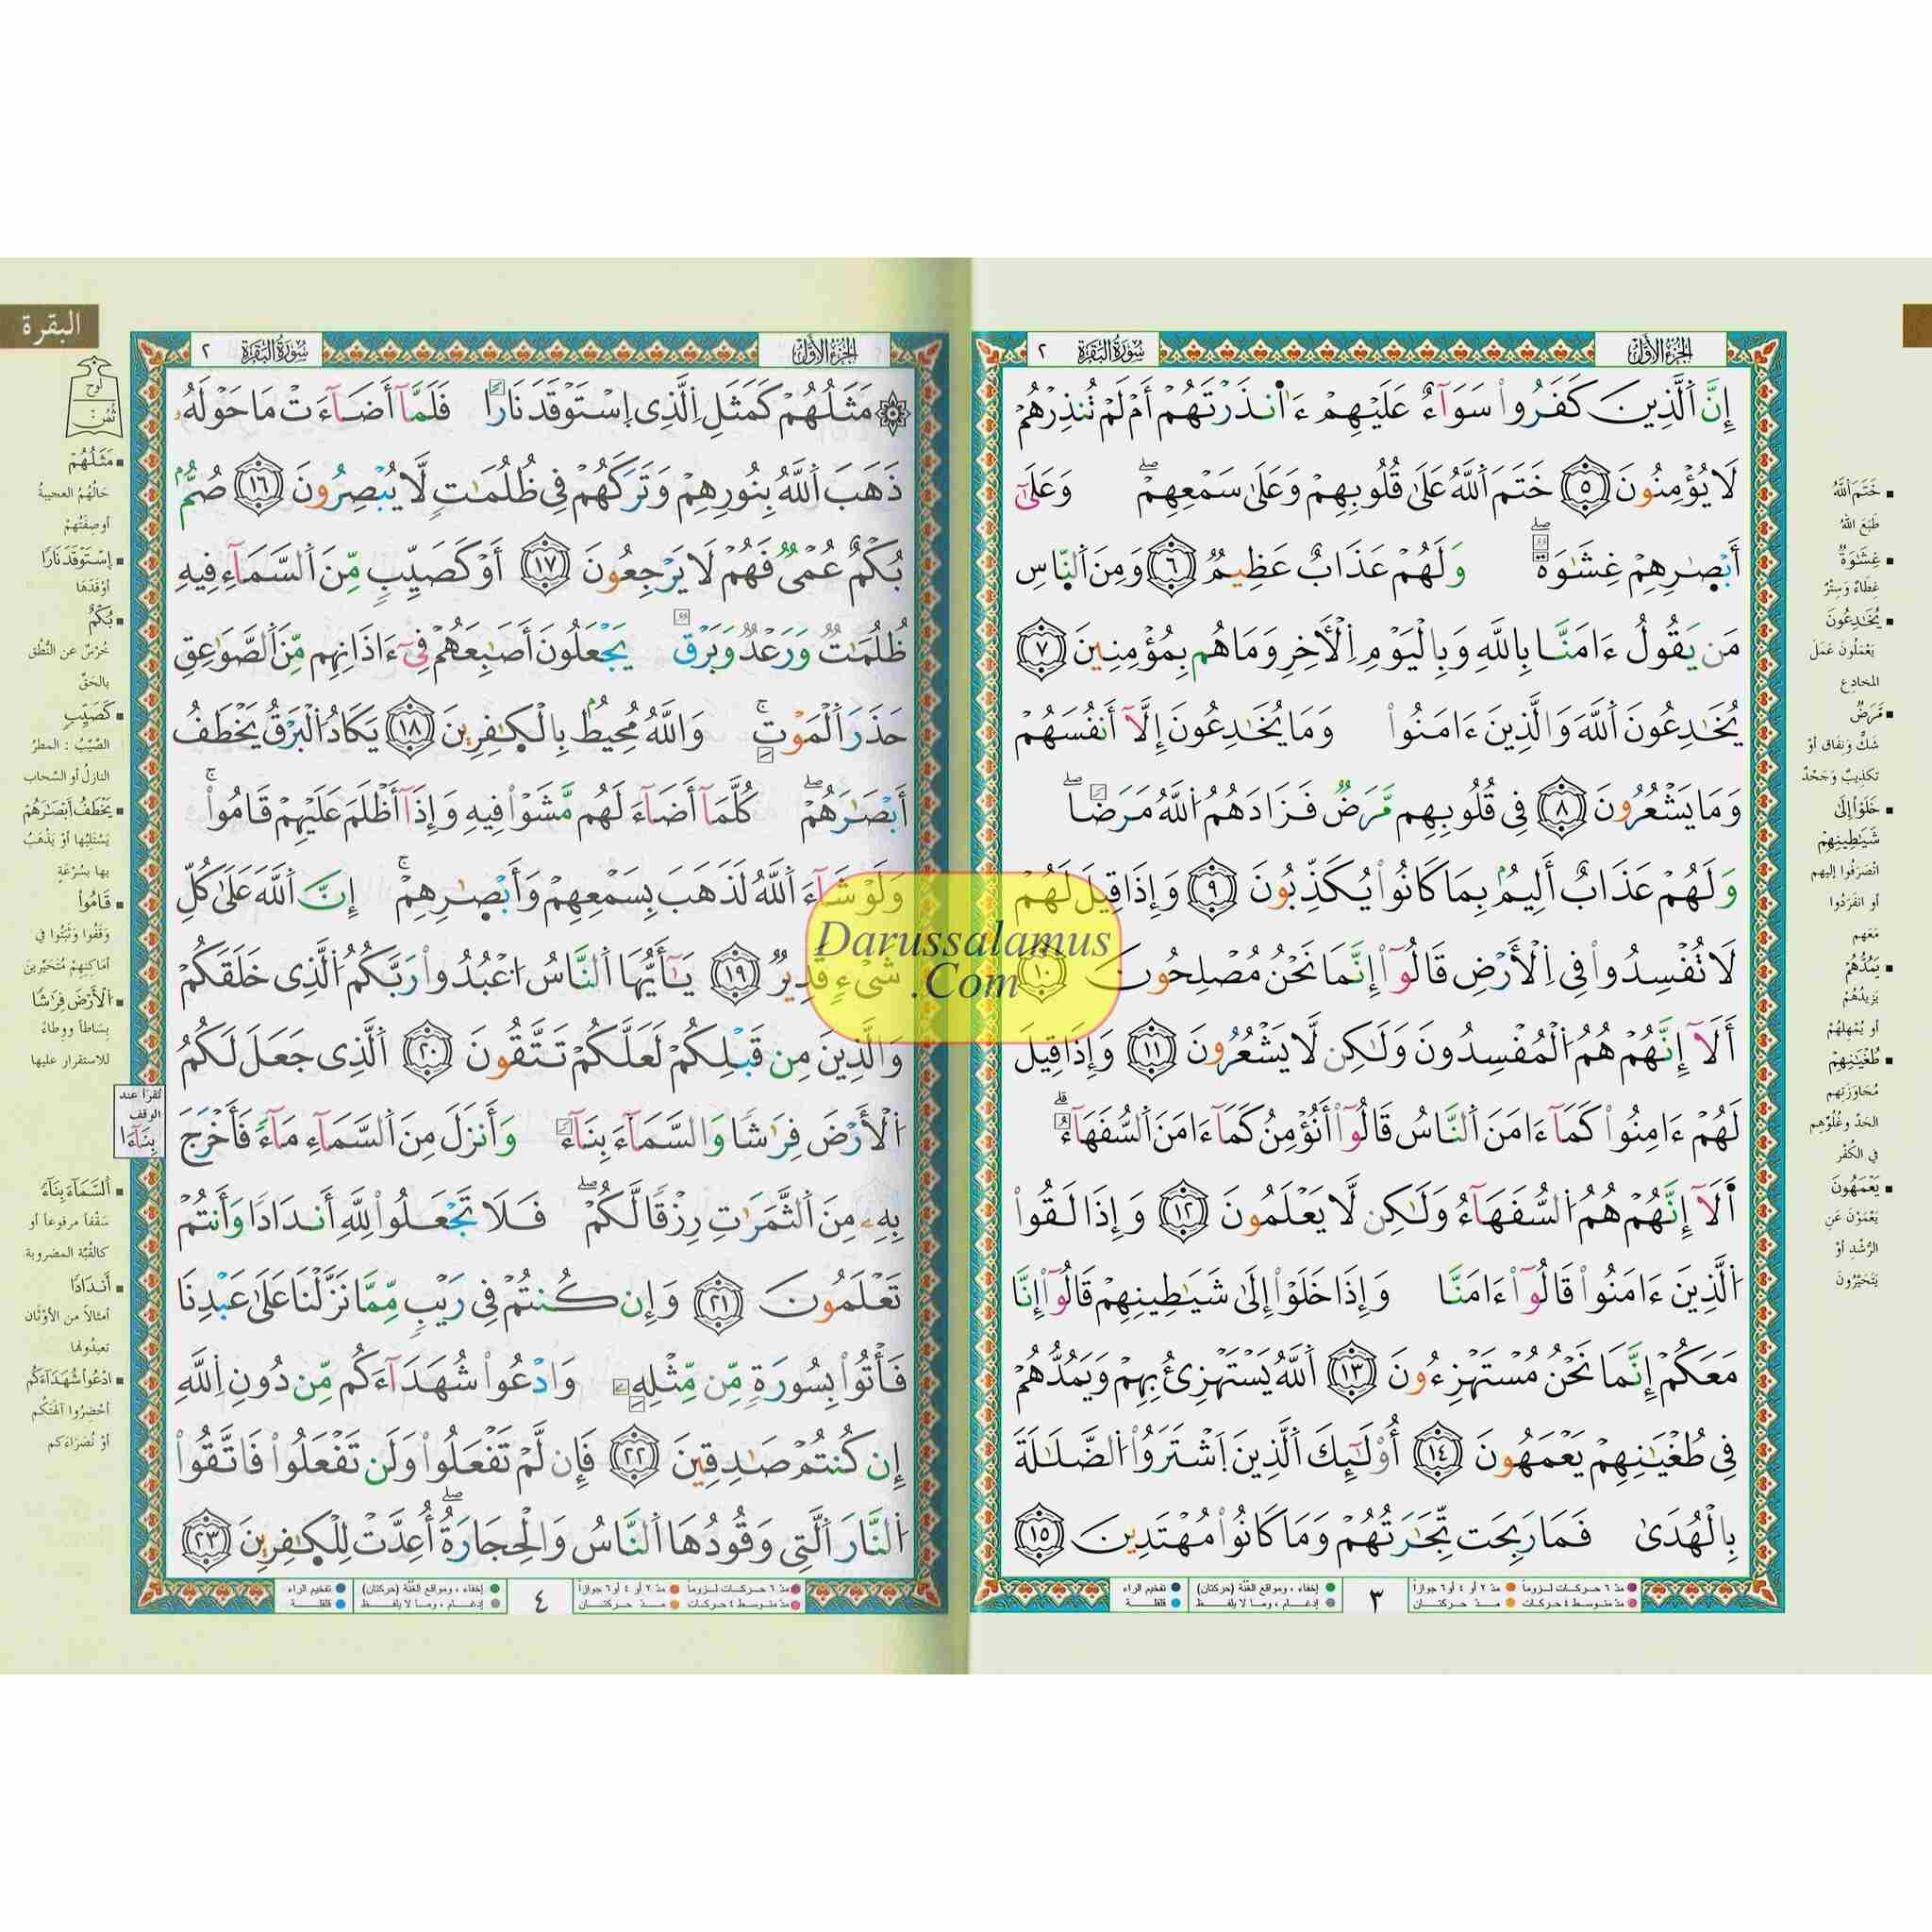 الجزء الأول
سورة البقرة ٢
إِنَّ ٱلَّذِينَ كَفَرُوا۟ سَوَآءٌ عَلَيْهِمْ ءَا۬نذَرْتَهُمْ أَمْ لَمْ تُنذِرْهُمْ
لَا يُؤْمِنُونَ ٥ خَتَمَ ٱللَّهُ عَلَىٰ قُلُوبِهِمْ وَعَلَىٰ سَمْعِهِمْۖ وَعَلَىٰٓ
أَبْصَٰرِهِمْ غِشَٰوَةٌۖ وَلَهُمْ عَذَابٌ عَظِيمٌ ٦ وَمِنَ ٱلنَّاسِ
مَن يَقُولُ ءَامَنَّا بِاللَّهِ وَبِالْيَوْمِ اِ۬لْأٓخِرِ وَمَا هُم بِمُؤْمِنِينَ ٧
يُخَٰدِعُونَ ٱللَّهَ وَالَّذِينَ ءَامَنُوا۟ وَمَا يُخَٰدِعُونَ إِلَّآ أَنفُسَهُمْ
وَمَا يَشْعُرُونَ ٨ فِى قُلُوبِهِم مَّرَضٌ فَزَادَهُمُ ٱللَّهُ مَرَضًاۖ
وَلَهُمْ عَذَابٌ أَلِيمٌۢ بِمَا كَانُوا۟ يُكَذِّبُونَ ٩ وَإِذَا قِيلَ لَهُمْ
لَا تُفْسِدُوا۟ فِى اِ۬لْأَرْضِ قَالُوٓا۟ إِنَّمَا نَحْنُ مُصْلِحُونَ ١٠
أَلَآ إِنَّهُمْ هُمُ ٱلْمُفْسِدُونَ وَلَٰكِن لَّا يَشْعُرُونَ ١١ وَإِذَا قِيلَ
لَهُمْ ءَامِنُوا۟ كَمَآ ءَامَنَ ٱلنَّاسُ قَالُوٓا۟ أَنُؤْمِنُ كَمَآ ءَامَنَ ٱلسُّفَهَآءُۗ
أَلَآ إِنَّهُمْ هُمُ ٱلسُّفَهَآءُ وَلَٰكِن لَّا يَعْلَمُونَ ١٢ وَإِذَا لَقُوا۟
ٱلَّذِينَ ءَامَنُوا۟ قَالُوٓا۟ ءَامَنَّا وَإِذَا خَلَوْا۟ إِلَىٰ شَيَٰطِينِهِمْ قَالُوٓا۟ إِنَّا
مَعَكُمْ إِنَّمَا نَحْنُ مُسْتَهْزِءُونَ ١٣ ٱللَّهُ يَسْتَهْزِئُ بِهِمْ وَيَمُدُّهُمْ
فِى طُغْيَٰنِهِمْ يَعْمَهُونَ ١٤ أُو۟لَٰٓئِكَ ٱلَّذِينَ اَ۪شْتَرَوُا۟ ٱلضَّلَٰلَةَ
بِالْهُدَىٰ فَمَا رَبِحَت تِّجَٰرَتُهُمْ وَمَا كَانُوا۟ مُهْتَدِينَ ١٥
مدّ ٦ حركات لزوماً مدّ ٢ أو ٤ أو ٦ جوازاً
مدّ متوسط ٤ حركات مدّ حركتان
٣
إخفاء، ومواقع الغُنَّة (حركتان) تفخيم الراء
إدغام، وما لا يلفظ قلقلة
خَتَمَ ٱللَّهُ
طَبَعَ اللهُ
غِشَٰوَةٌ
غِطَاءٌ وَسِتْرٌ
يُخَٰدِعُونَ
يَعْمَلُونَ عَمَلَ
المخادِع
مَّرَضٌ
شكٌّ ونِفَاق أَوْ
تكذِيبٌ وَجَحْدٌ
خَلَوْا۟ إِلَىٰ
شَيَٰطِينِهِمْ
انْصَرَفُوا إليهم
أو انفَرَدُوا
مَعَهم
يَمُدُّهُمْ
يَزِيدُهُمْ
أو يُمْهِلُهُمْ
طُغْيَٰنِهِمْ
مُجَاوَزَتِهم
الحَدَّ وغُلُوِّهِم
في الكُفْرِ
يَعْمَهُونَ
يَعْمَوْنَ عَنِ
الرُّشْدِ أَوْ
يَتَحَيَّرُونَ
Darussalamus
.Com
البقرة
الجزء الأول
سورة البقرة ٢
مَثَلُهُمْ كَمَثَلِ اِ۬لَّذِى اِ۪سْتَوْقَدَ نَارًا فَلَمَّآ أَضَآءَتْ مَا حَوْلَهُۥ
ذَهَبَ ٱللَّهُ بِنُورِهِمْ وَتَرَكَهُمْ فِى ظُلُمَٰتٍ لَّا يُبْصِرُونَ ١٦ صُمٌّۢ
بُكْمٌ عُمْىٌ فَهُمْ لَا يَرْجِعُونَ ١٧ أَوْ كَصَيِّبٍ مِّنَ ٱلسَّمَآءِ فِيهِ
ظُلُمَٰتٌ وَرَعْدٌ وَبَرْقٌ يَجْعَلُونَ أَصَٰبِعَهُمْ فِىٓ ءَاذَانِهِم مِّنَ ٱلصَّوَٰعِقِ
حَذَرَ ٱلْمَوْتِۚ وَاللَّهُ مُحِيطٌۢ بِالْكَٰفِرِينَ ١٨ يَكَادُ ٱلْبَرْقُ يَخْطَفُ
أَبْصَٰرَهُمْۖ كُلَّمَآ أَضَآءَ لَهُم مَّشَوْا۟ فِيهِ وَإِذَآ أَظْلَمَ عَلَيْهِمْ قَامُوا۟ۚ
وَلَوْ شَآءَ ٱللَّهُ لَذَهَبَ بِسَمْعِهِمْ وَأَبْصَٰرِهِمْۚ إِنَّ ٱللَّهَ عَلَىٰ كُلِّ
شَىْءٍ قَدِيرٌ ١٩ يَٰٓأَيُّهَا ٱلنَّاسُ اُ۟عْبُدُوا۟ رَبَّكُمُ ٱلَّذِى خَلَقَكُمْ
وَالَّذِينَ مِن قَبْلِكُمْ لَعَلَّكُمْ تَتَّقُونَ ٢٠ ٱلَّذِى جَعَلَ لَكُمُ
ٱلْأَرْضَ فِرَٰشًا وَالسَّمَآءَ بِنَآءً وَأَنزَلَ مِنَ ٱلسَّمَآءِ مَآءً فَأَخْرَجَ
بِهِۦ مِنَ ٱلثَّمَرَٰتِ رِزْقًا لَّكُمْۖ فَلَا تَجْعَلُوا۟ لِلَّهِ أَندَادًا وَأَنتُمْ
تَعْلَمُونَ ٢١ وَإِن كُنتُمْ فِى رَيْبٍ مِّمَّا نَزَّلْنَا عَلَىٰ عَبْدِنَا
فَأْتُوا۟ بِسُورَةٍ مِّن مِّثْلِهِۦ وَادْعُوا۟ شُهَدَآءَكُم مِّن دُونِ اِ۬للَّهِ
إِن كُنتُمْ صَٰدِقِينَ ٢٢ فَإِن لَّمْ تَفْعَلُوا۟ وَلَن تَفْعَلُوا۟ فَاتَّقُوا۟
ٱلنَّارَ ٱلَّتِى وَقُودُهَا ٱلنَّاسُ وَالْحِجَارَةُۖ أُعِدَّتْ لِلْكَٰفِرِينَ ٢٣
مدّ ٦ حركات لزوماً مدّ ٢ أو ٤ أو ٦ جوازاً
مدّ متوسط ٤ حركات مدّ حركتان
٤
إخفاء، ومواقع الغُنَّة (حركتان) تفخيم الراء
إدغام، وما لا يلفظ قلقلة
مَثَلُهُمْ
حَالُهُمُ العجيبةُ
أو صِفَتُهمْ
اِ۪سْتَوْقَدَ نَارًا
أَوْقَدَهَا
بُكْمٌ
خُرْسٌ عن النُّطْقِ
بالحَقِّ
كَصَيِّبٍ
الصَّيِّبُ : المطرُ
النازلُ أو السَّحاب
يَخْطَفُ أَبْصَٰرَهُمْ
يَسْتَلِبُها أَوْ يَذْهَبُ
بها بسُرْعَةٍ
قَامُوا۟
وَقَفُوا وَثَبَتُوا في
أمَاكِنِهِمْ مُتَحَيِّرِينَ
ٱلْأَرْضَ فِرَٰشًا
بِسَاطاً ووِطاءً
للاستقرار عليها
تُقرأ عند
الوقف
بِنَآءَا
ٱلسَّمَآءَ بِنَآءً
سَقْفاً مرفوعاً أو
كالقُبَّة المضروبة
أَندَادًا
أمثالاً من الأَوْثَانِ
تعبدُونها
ادْعُوا۟ شُهَدَآءَكُم
أحْضِرُوا آلهتَكُم
أَوْ نُصَرَاءَكم